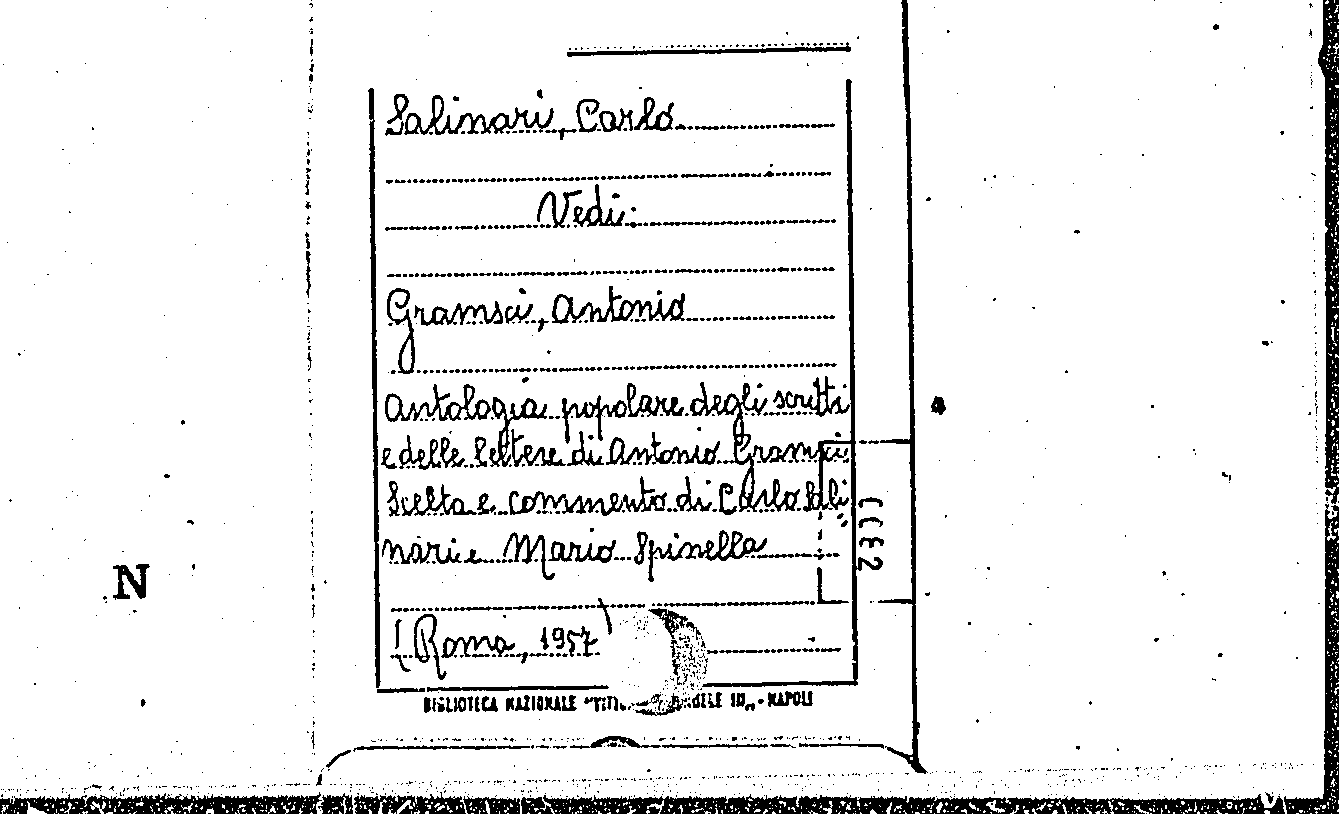 Salinari, Carlo
Vedi:
Gramsci, Antonio
Antologia popolare degli scritti
e delle lettere di Antonio Gramsci
Scelta e commento di Carlo Sali
nari e Mario Spinella
(Roma, 1957
BIBLIOTECA NAZIONALE - NAPOLI
N